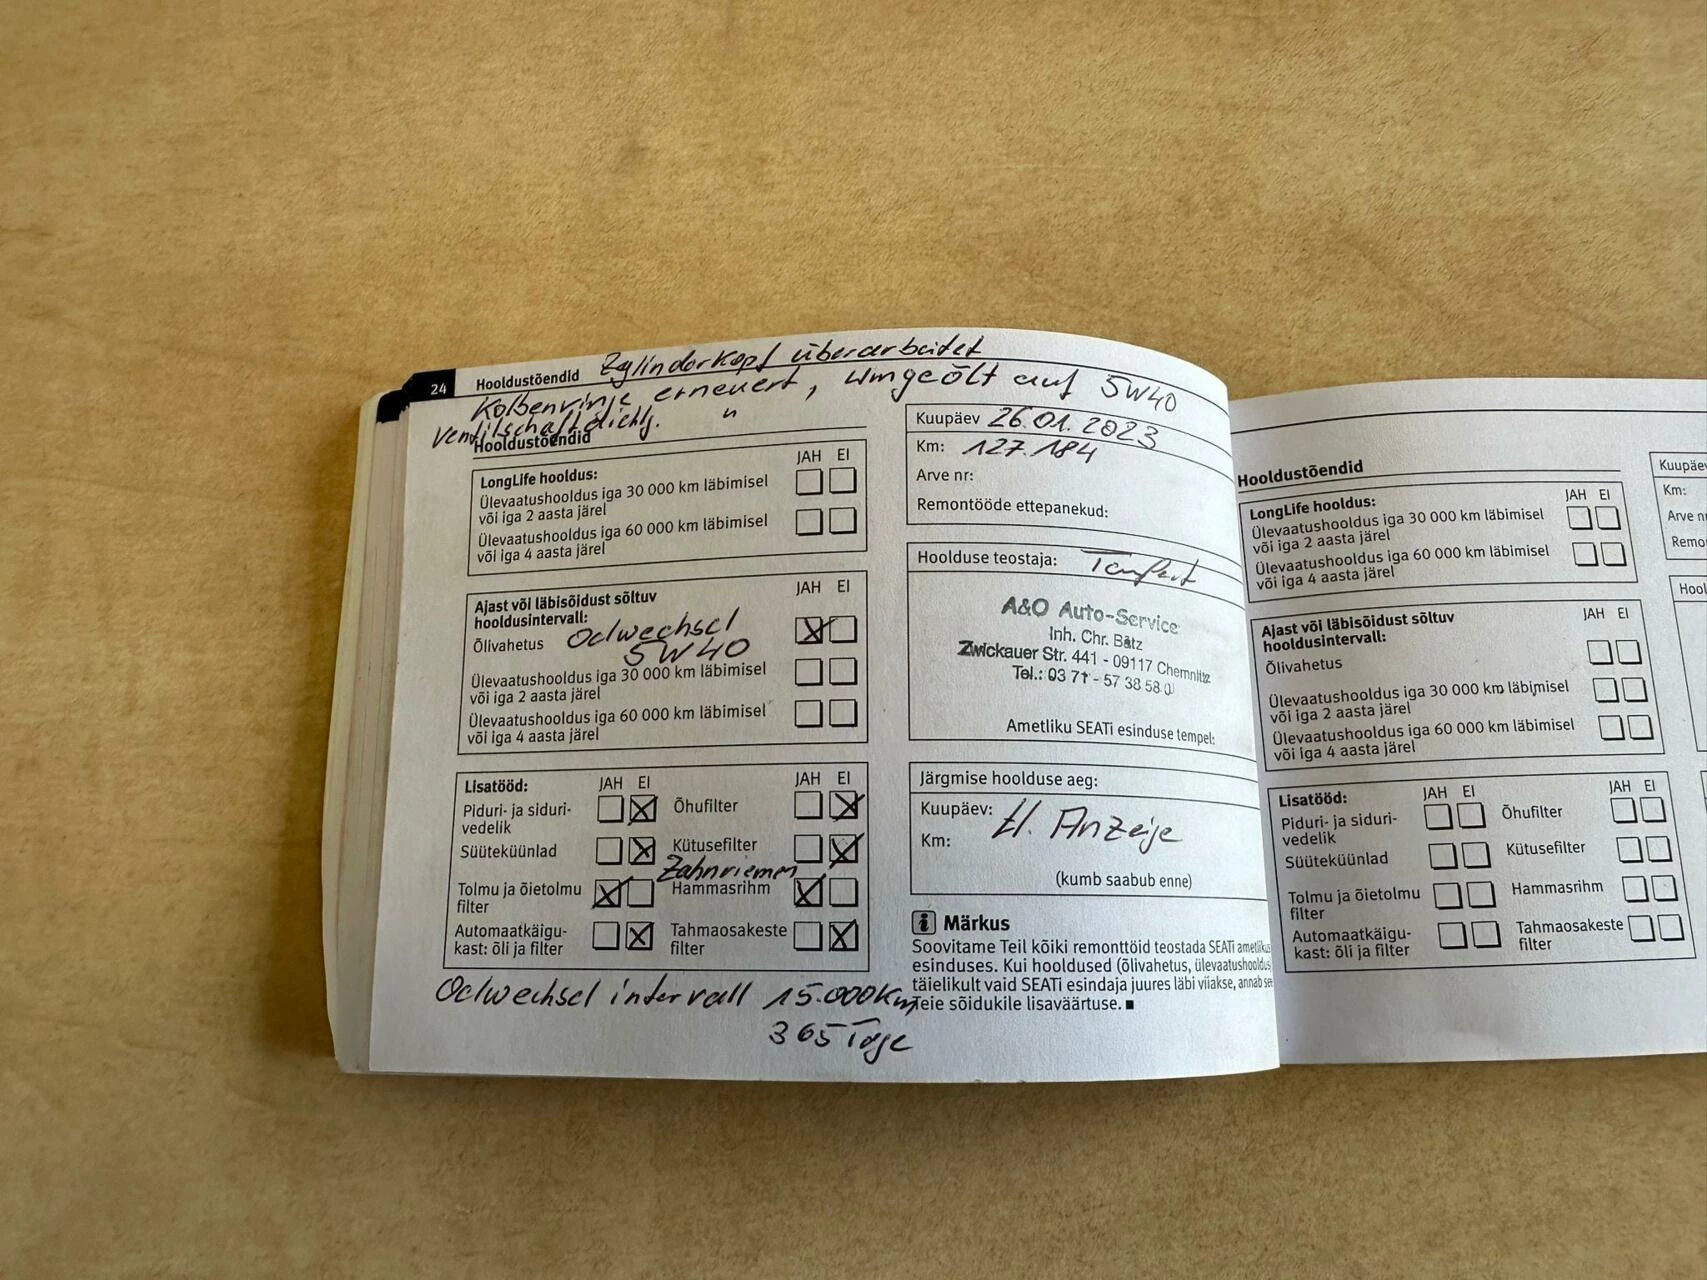 24 Hooldustõendid Zylinderkopf überarbeitet
Kolbenringe erneuert, umgeölt auf 5W40
Ventilschaftdichtg. "
Hooldustõendid
JAH EI
LongLife hooldus:
Ülevaatushooldus iga 30 000 km läbimisel
või iga 2 aasta järel
Ülevaatushooldus iga 60 000 km läbimisel
või iga 4 aasta järel
JAH EI
Ajast või läbisõidust sõltuv
hooldusintervall:
Õlivahetus Oelwechsel
5W40
Ülevaatushooldus iga 30 000 km läbimisel
või iga 2 aasta järel
Ülevaatushooldus iga 60 000 km läbimisel
või iga 4 aasta järel
Lisatööd: JAH EI JAH EI
Piduri- ja siduri-
vedelik
Õhufilter
Süüteküünlad
Kütusefilter
Zahnriemen
Tolmu ja õietolmu
filter
Hammasrihm
Automaatkäigu-
kast: õli ja filter
Tahmaosakeste
filter
Oelwechsel intervall 15.000Km
365 Tage
Kuupäev 26.01.2023
Km: 127.184
Arve nr:
Remontööde ettepanekud:
Hoolduse teostaja:
A&O Auto-Service
Inh. Chr. Bätz
Zwickauer Str. 441 - 09117 Chemnitz
Tel.: 03 71 - 57 38 58 0
Ametliku SEATi esinduse tempel:
Järgmise hoolduse aeg:
Kuupäev: lt. Anzeige
Km:
(kumb saabub enne)
i Märkus
Soovitame Teil kõiki remonttöid teostada SEATi ametliku
esinduses. Kui hooldused (õlivahetus, ülevaatushooldus
täielikult vaid SEATi esindaja juures läbi viiakse, annab see
Teie sõidukile lisaväärtuse. ■
Hooldustõendid
JAH EI
LongLife hooldus:
Ülevaatushooldus iga 30 000 km läbimisel
või iga 2 aasta järel
Ülevaatushooldus iga 60 000 km läbimisel
või iga 4 aasta järel
JAH EI
Ajast või läbisõidust sõltuv
hooldusintervall:
Õlivahetus
Ülevaatushooldus iga 30 000 km läbimisel
või iga 2 aasta järel
Ülevaatushooldus iga 60 000 km läbimisel
või iga 4 aasta järel
Lisatööd: JAH EI JAH EI
Piduri- ja siduri-
vedelik
Õhufilter
Süüteküünlad
Kütusefilter
Tolmu ja õietolmu
filter
Hammasrihm
Automaatkäigu-
kast: õli ja filter
Tahmaosakeste
filter
Kuupäev
Km:
Arve n
Remo
Hool